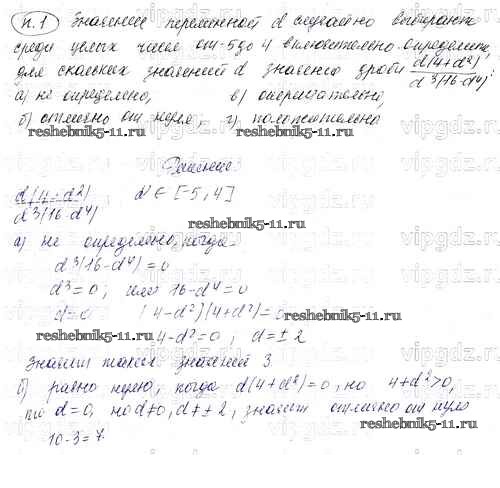 п.1 Значение переменной d случайно выбирают
среди целых чисел от -5 до 4 включительно. Определите,
для скольких значений d значение дроби d(4+d²)/d³(16-d⁴):
а) не определено, в) отрицательно,
б) отлично от нуля, г) положительно
reshebnik5-11.ru reshebnik5-11.ru
Решение
d(4+d²)/d³(16-d⁴) d ∈ [-5, 4]
reshebnik5-11.ru
а) не определено, когда
d³(16-d⁴)=0
d³=0, или 16-d⁴=0
d=0 (4-d²)(4+d²)=0
reshebnik5-11.ru reshebnik5-11.ru
4-d²=0, d=±2
Значит таких значений 3
б) равно нулю, когда d(4+d²)=0, но 4+d²>0,
то d=0, но d≠0, d≠±2, значит отлично от нуля
10-3=7
vipgdz.ru